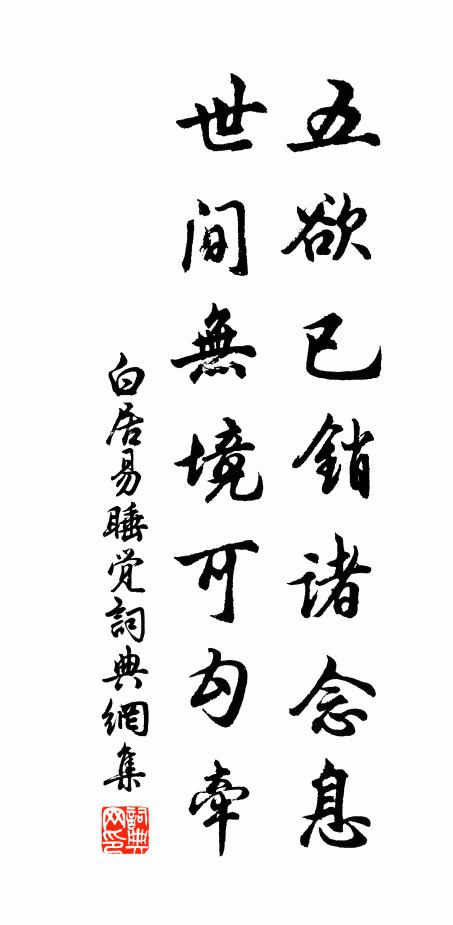 五欲已銷诸念息
世间無境可勾牽
白居易睡觉詞典網集
詞典网印